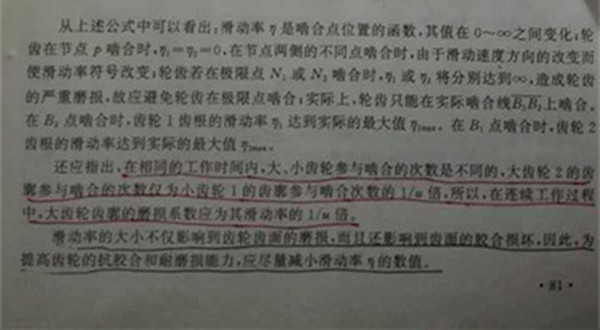 从上述公式中可以看出,滑动率 η 是啮合点位置的函数,其值在 0～∞之间变化;轮
齿在节点 p 啮合时,η₁=η₂=0,在节点两侧的不同点啮合时,由于滑动速度方向的改变而
使滑动率符号改变;轮齿若在极限点 N₁ 或 N₂ 啮合时,η₁ 或 η₂ 将分别达到∞,造成轮齿
的严重磨损,故应避免轮齿在极限点啮合;实际上,轮齿只能在实际啮合线B₂B₁上啮合。
在 B₂ 点啮合时,齿轮 1 齿根的滑动率 η₁ 达到实际的最大值 η₁max。在 B₁ 点啮合时,齿轮 2
齿根的滑动率达到实际的最大值 η₂max。
还应指出,在相同的工作时间内,大、小齿轮参与啮合的次数是不同的,大齿轮 2 的齿
廓参与啮合的次数仅为小齿轮 1 的齿廓参与啮合次数的 1/u 倍,所以,在连续工作过程
中,大齿轮齿廓的磨损系数应为其滑动率的 1/u 倍。
滑动率的大小不仅影响到齿轮齿面的磨损,而且还影响到齿面的胶合损坏,因此,为
提高齿轮的抗胶合和耐磨损能力,应尽量减小滑动率 η 的数值。
· 81 ·